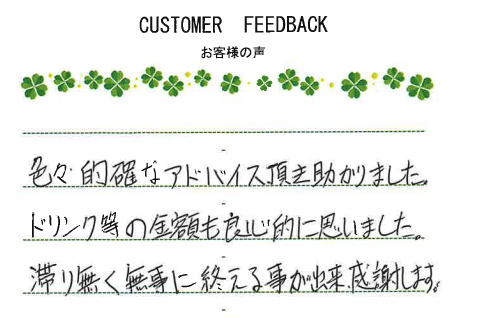 CUSTOMER FEEDBACK
お客様の声
色々的確なアドバイス頂き助かりました。
ドリンク等の金額も良心的に思いました。
滞り無く無事に終える事が出来感謝します。